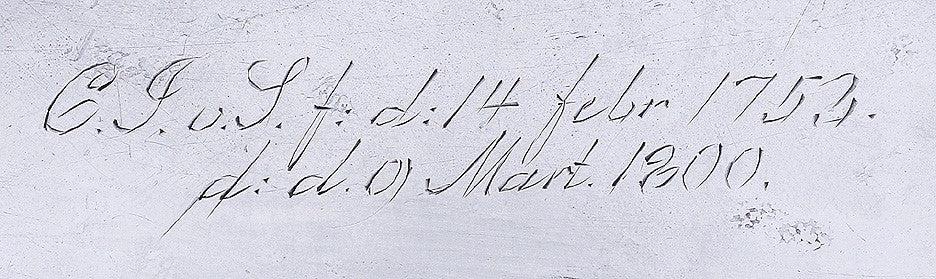 C. J. v. S. f: d: 14 febr 1753.
d: d. 9 Mart. 1800.